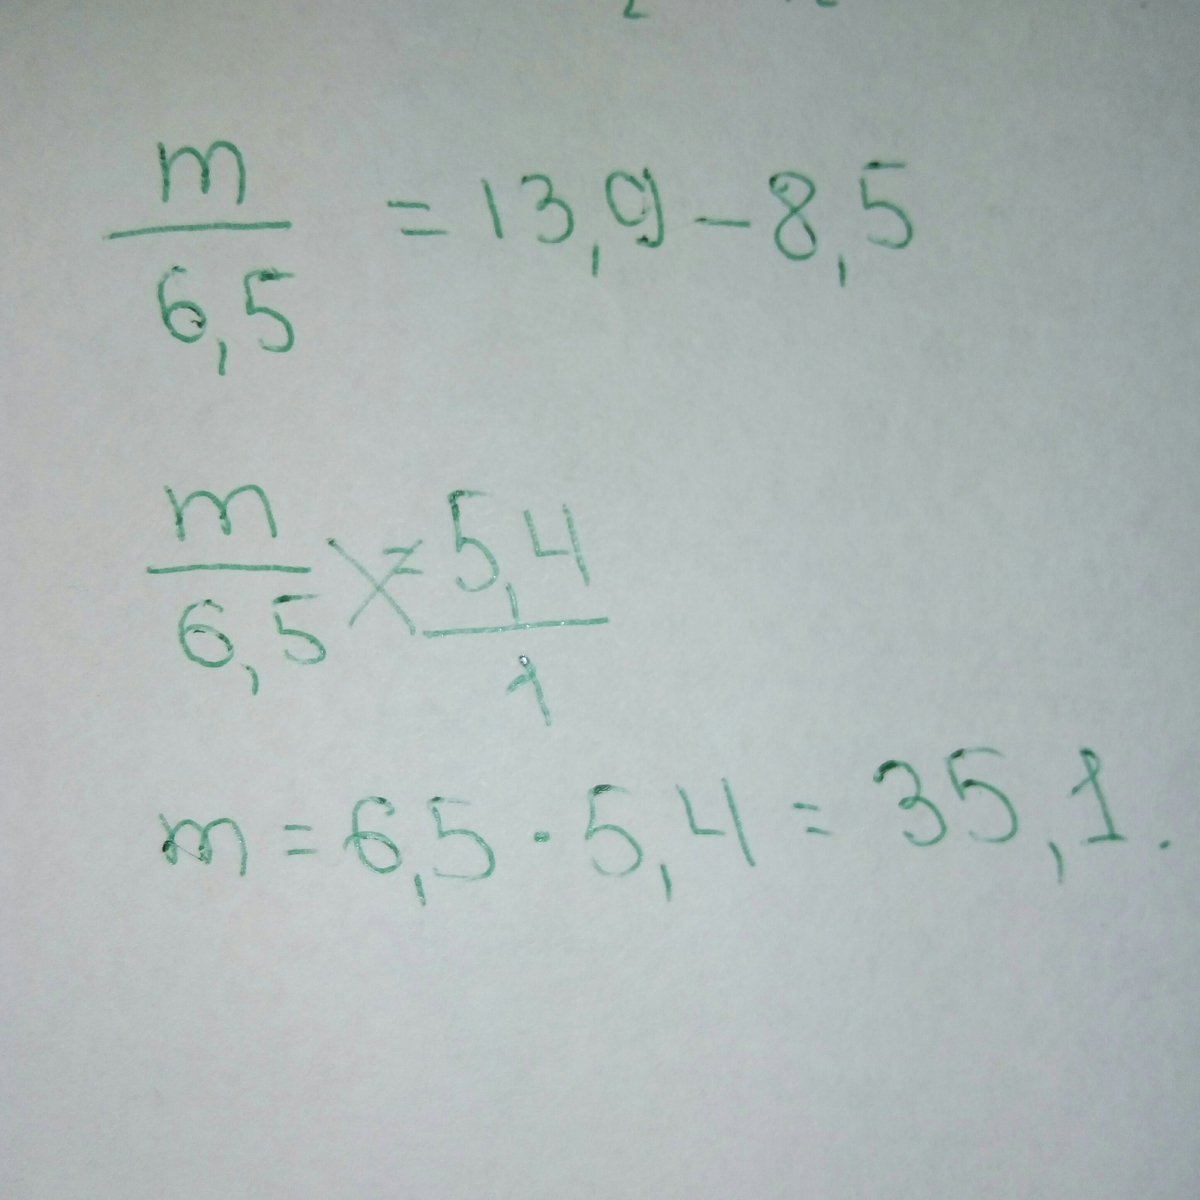 m/6,5 = 13,9 - 8,5
m/6,5 = 5,4/1
m = 6,5 · 5,4 = 35,1.